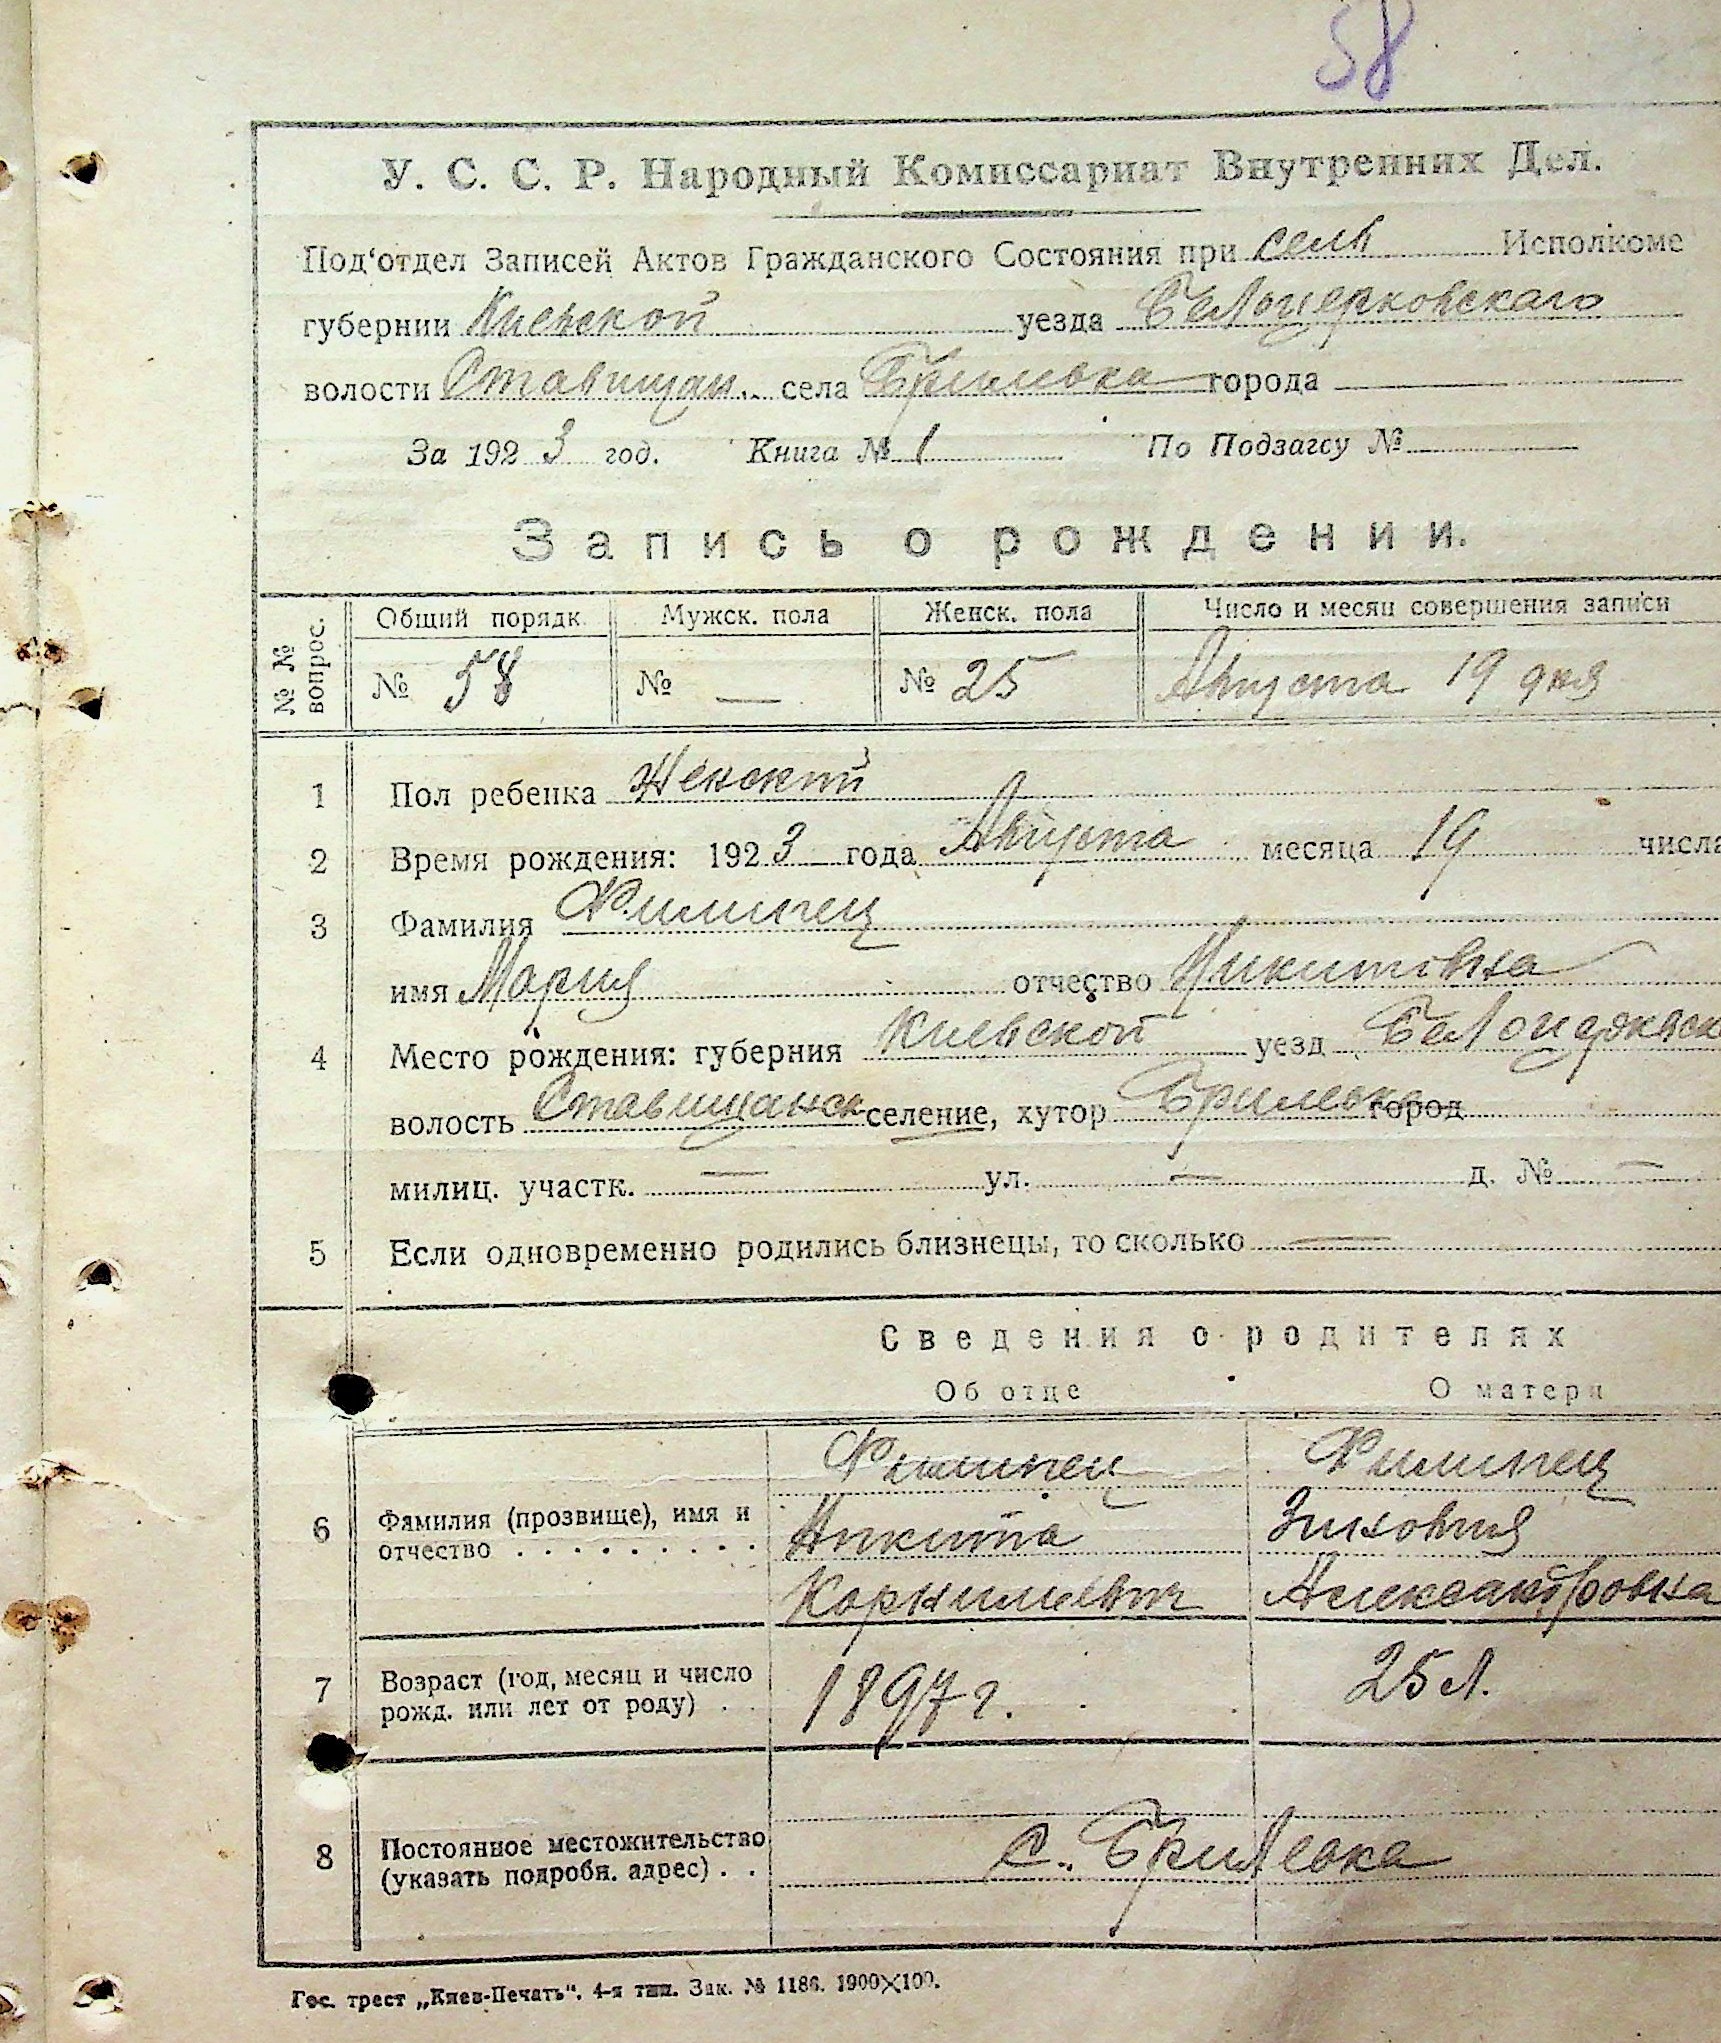 58
У. С. С. Р. Народный Комиссариат Внутренних Дел.
Под‘отдел Записей Актов Гражданского Состояния при сель Исполкоме
губернии Киевской уезда Белоцерковскаго
волости Ставищан. села Брилевка города —
За 1923 год. Книга № 1 По Подзагсу №
Запись о рождении.
№ № вопрос. Общий порядк. Мужск. пола Женск. пола Число и месяц совершения записи
№ 58 № — № 25 Августа 19 дня
1 Пол ребенка Женский
2 Время рождения: 1923 года Августа месяца 19 числа
3 Фамилия Филипец
имя Мария отчество Микитовна
4 Место рождения: губерния Киевской уезд Белоцерковск
волость Ставищанск селение, хутор Брилевка город
милиц. участк. — ул. — д. № —
5 Если одновременно родились близнецы, то сколько —
Сведения о родителях
Об отце О матери
Филипец Филипец
6 Фамилия (прозвище), имя и Никита Зиновия
отчество . . . . . . . . . Корнилиевич Александровна
7 Возраст (год, месяц и число 1897 г. 25 л.
рожд. или лет от роду) . .
8 Постоянное местожительство с. Брилевка
(указать подробн. адрес) . .
Гос. трест „Киев-Печать“. 4-я тип. Зак. № 1186. 1900×100.